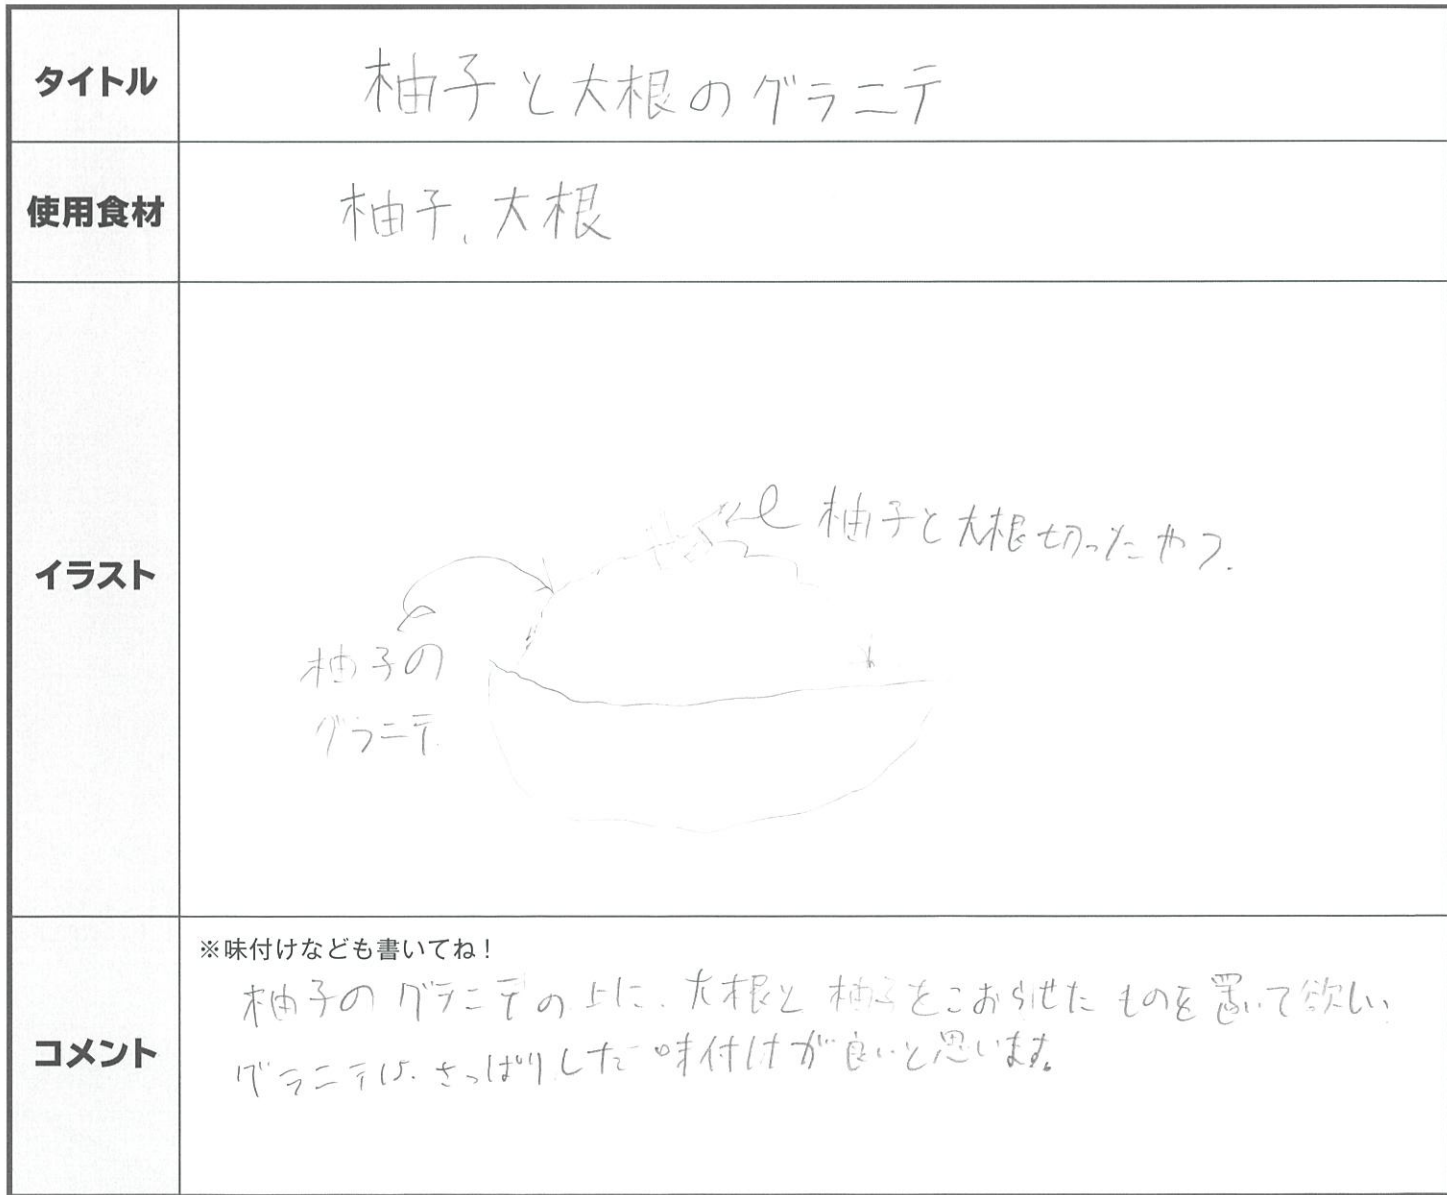 タイトル
柚子と大根のグラニテ
使用食材
柚子、大根
イラスト
柚子と大根切ったやつ.
柚子の
グラニテ
コメント
※味付けなども書いてね！
柚子のグラニテの上に、大根と柚子をこおらせたものを置いて欲しい
グラニテは、さっぱりした味付けが良いと思います。